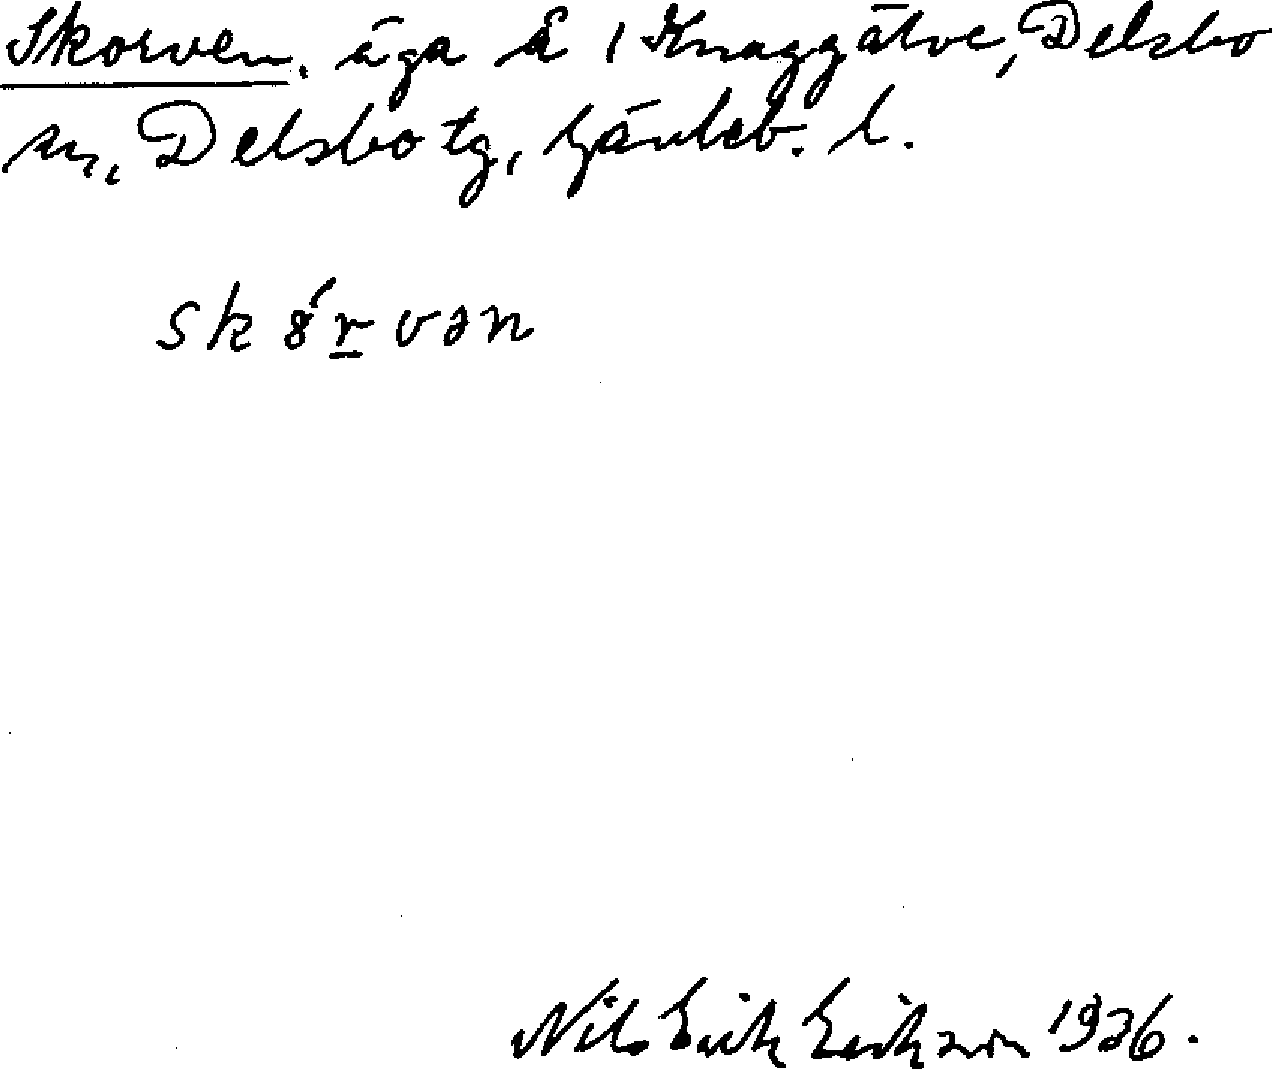 Skorven, äga å i Knaggälve, Delsbo
sn, Delsbo tg, Gävleb. l.
sk8́r̲vən
Nils Erik Eriksson 1936.